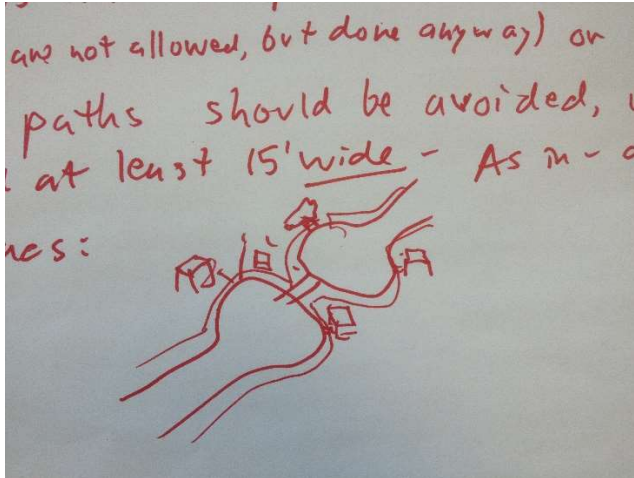 are not allowed, but done anyway) or
paths should be avoided,
at least 15' wide - As in -